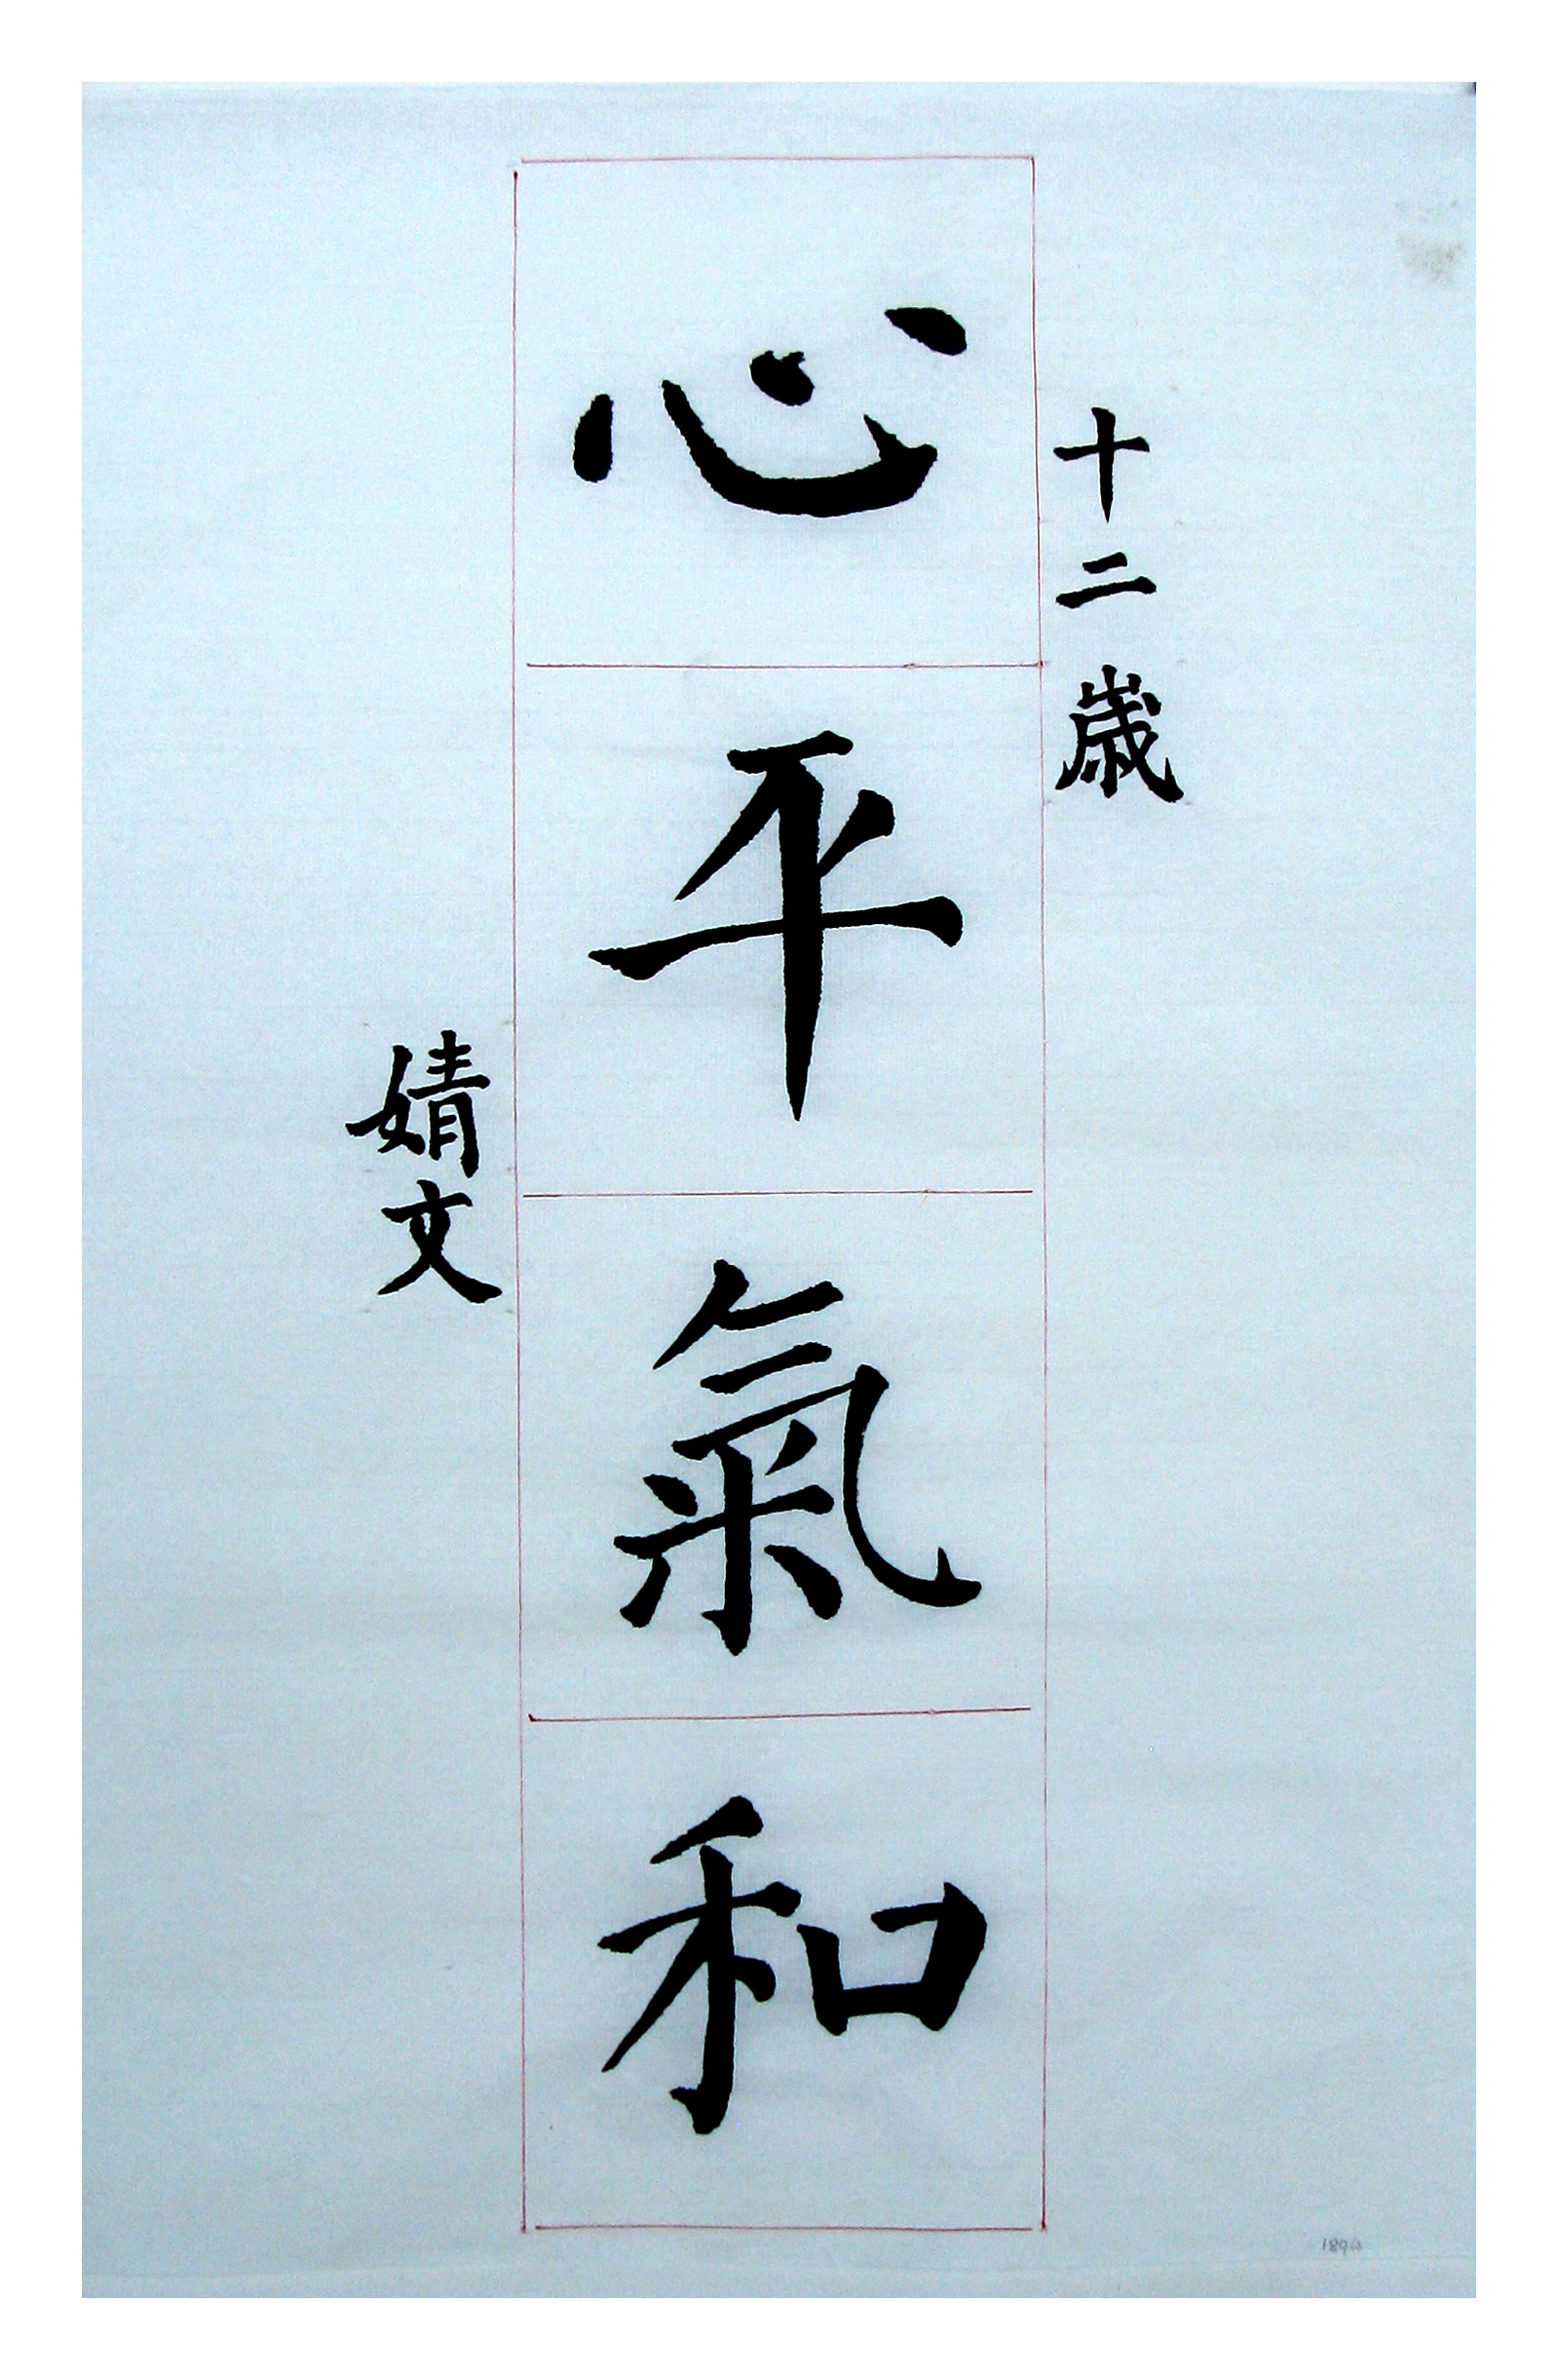 十二歲
心平氣和
婧文